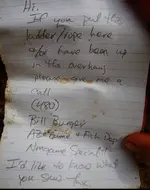 Hi,
If you put the
ladder/rope here
&/or have been up
in the overhang
please give me a
call
(480)
Bill Burger
AZ Game & Fish Dept
Nongame Specialist
I'd like to know what
you saw. Thx.